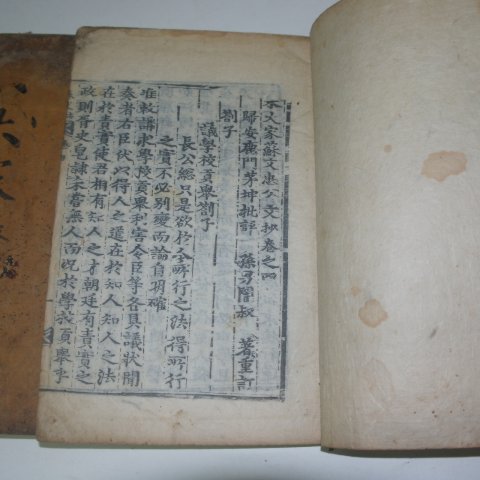 宋大家蘇文忠公文抄卷之四
歸安鹿門茅坤批評 孫男闇叔 著重訂
劄子
議學校貢擧劄子
長公經只是欲於今所行之法得所行
之實不必別變而論自明確
准敕講求學校貢擧利害令臣等各具議狀聞
奏者臣伏以得人之道在於知人知人之法
在於責實使君相有知人之才朝廷有責實之
政則胥史皂隷未嘗無人而況於學校貢擧乎